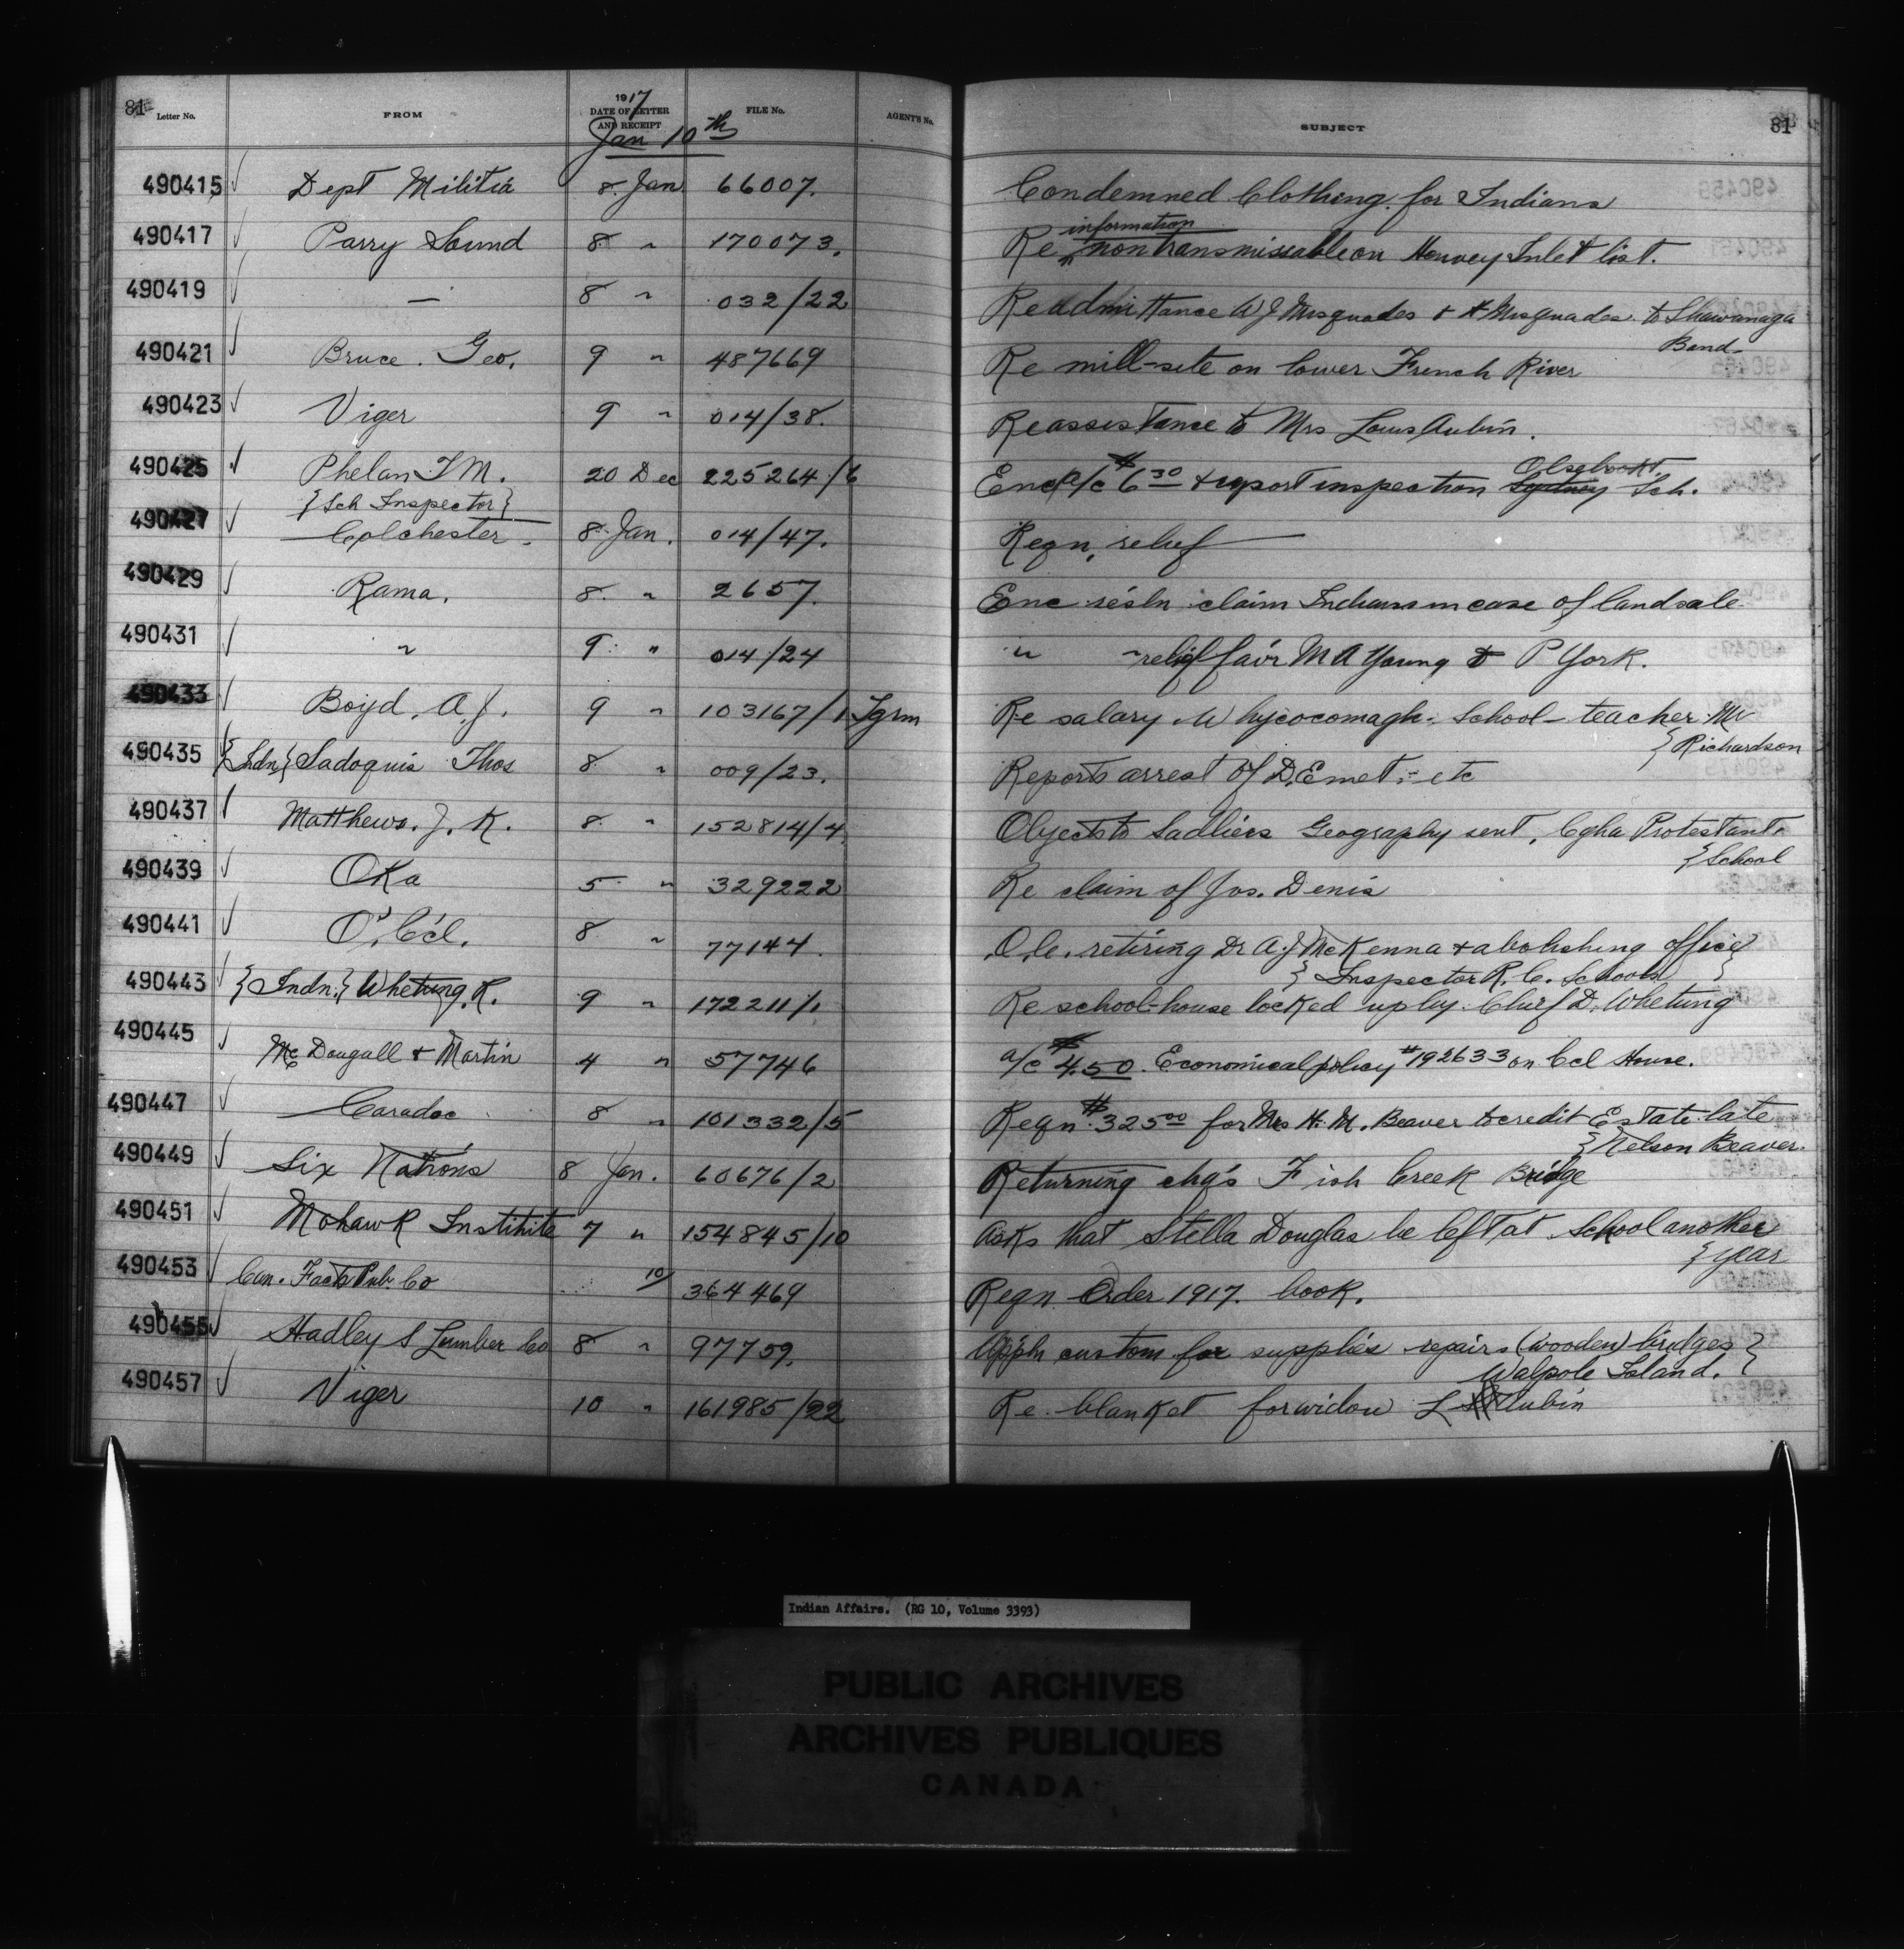 81 Letter No. FROM 1917 DATE OF LETTER AND RECEIPT FILE No. AGENT'S No. SUBJECT 81
Jan 10th
490415 Dept Militia 8. Jan 66007. Condemned Clothing for Indians
information
490417 Parry Sound 8 " 170073. Re nontransmissable on Henvey Inlet list.
490419 — 8 " 032/22 Re admittance W J Misquades & H Misquades to Shawanaga
Band
490421 Bruce. Geo. 9 " 487669 Re mill-site on lower French River
490423 Viger 9 " 014/38. Re assistance to Mrs Louis Aubin.
490425 Phelan T M. 20 Dec 225264/6 Enc a/c $6 30 & report inspection Sydney Sch.
{Sch Inspector}
490427 Colchester. 8 Jan. 014/47. Reqn. relief
490429 Rama. 8. " 2657. Enc resln claim Indians in case of land sale
490431 " 9. " 014/24 " " relief fav'r M A Young & P York.
490433 Boyd. A. J. 9 " 103167/1 Tgrm Re salary. Whycocomagh. School-teacher Mr
{Richardson
490435 {Indn} Sadoquis Thos 8 " 009/23. Reports arrest of D. Emet, - etc
490437 Matthews. J. K. 8. " 152814/4. Objects to Sadliers Geography sent, Cgha Protestant
{School
490439 Oka 5 " 329222 Re claim of Jos. Denis
490441 O'. C'cl. 8 " 77144. O.C. retiring Dr A. J McKenna & abolishing office}
{Inspector R. C. Schools}
490443 {Indn.} Whetung. R. 9 " 172211/1. Re school-house locked up by Chief D. Whetung
490445 Mc Dougall & Martin 4 " 57746 a/c $4.50. Economical policy #192633 on Ccl House.
490447 Caradoc 8 " 101332/5 Reqn. $325 00 for Mrs H. M. Beaver to credit Estate late
{Nelson Beaver.
490449 Six Nations 8 Jan. 60676/2 Returning chqs Fish Creek Bridge
490451 Mohawk Institute 7 " 154845/10 Asks that Stella Douglas be left at School another
{year
490453 Can. Facts Pub. Co 10/ 364469 Reqn Order 1917. book.
490455 Hadley S Lumber Co 8 " 97759. Appln custom for supplies repairs (wooden) bridges}
Walpole Island.}
490457 Viger 10 " 161985/22 Re. blanket for widow L Aubin
Indian Affairs. (RG 10, Volume 3393)
PUBLIC ARCHIVES
ARCHIVES PUBLIQUES
CANADA